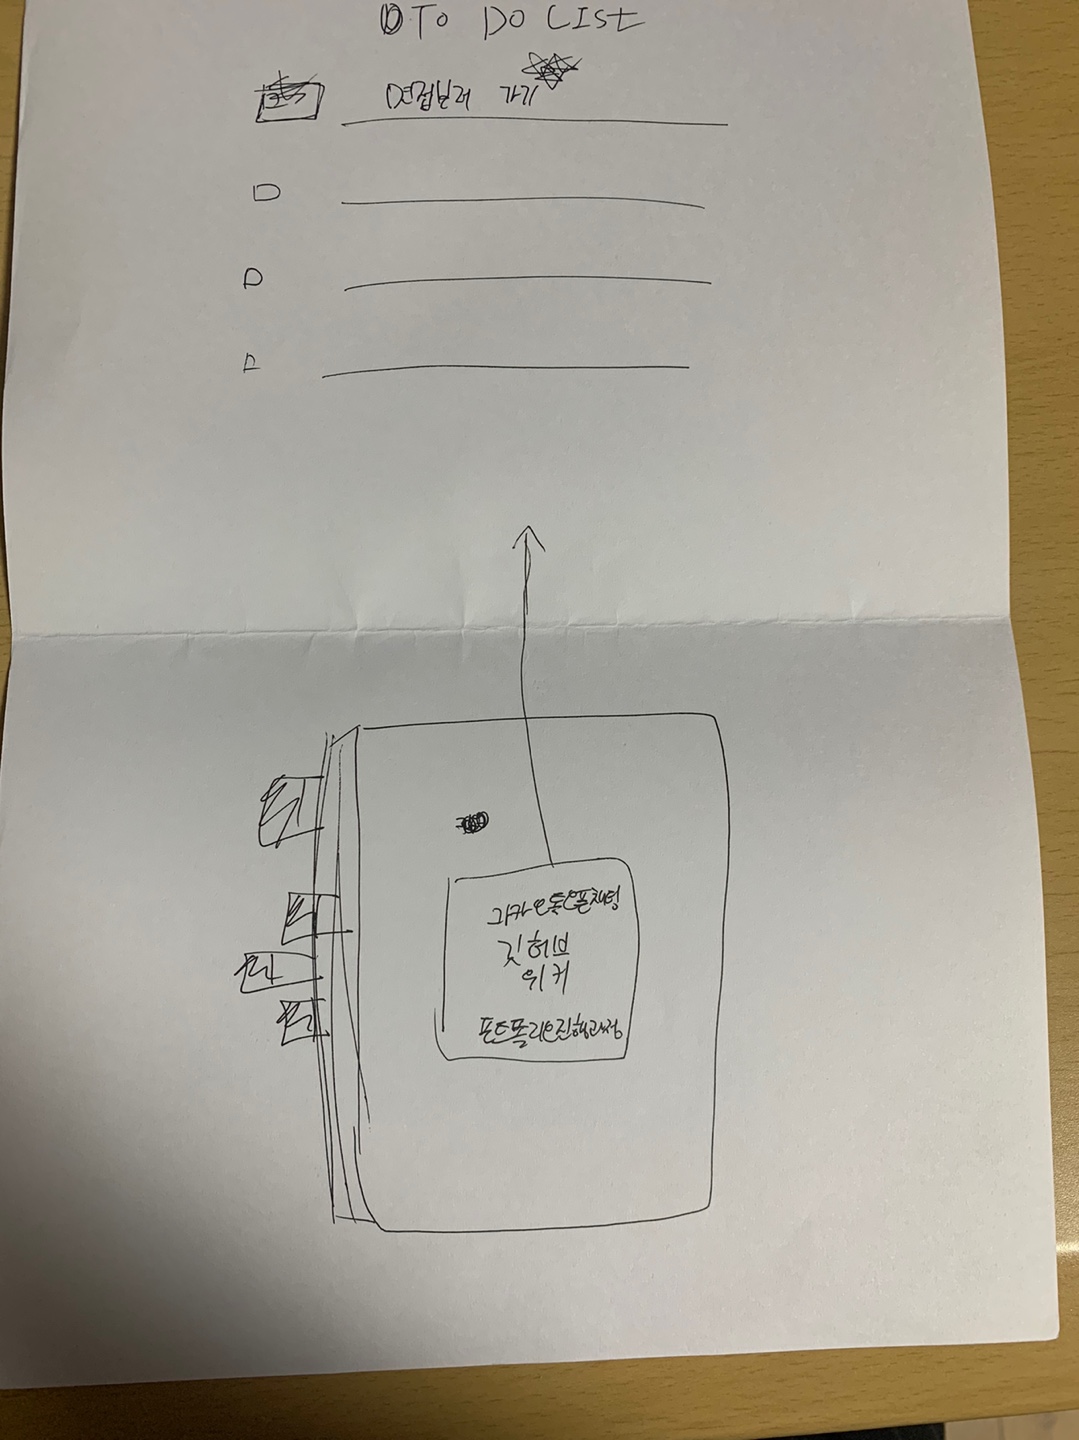 TO DO LIST
면접보러 가기
카카오톡오픈채팅
깃허브
위키
포트폴리오진행과정